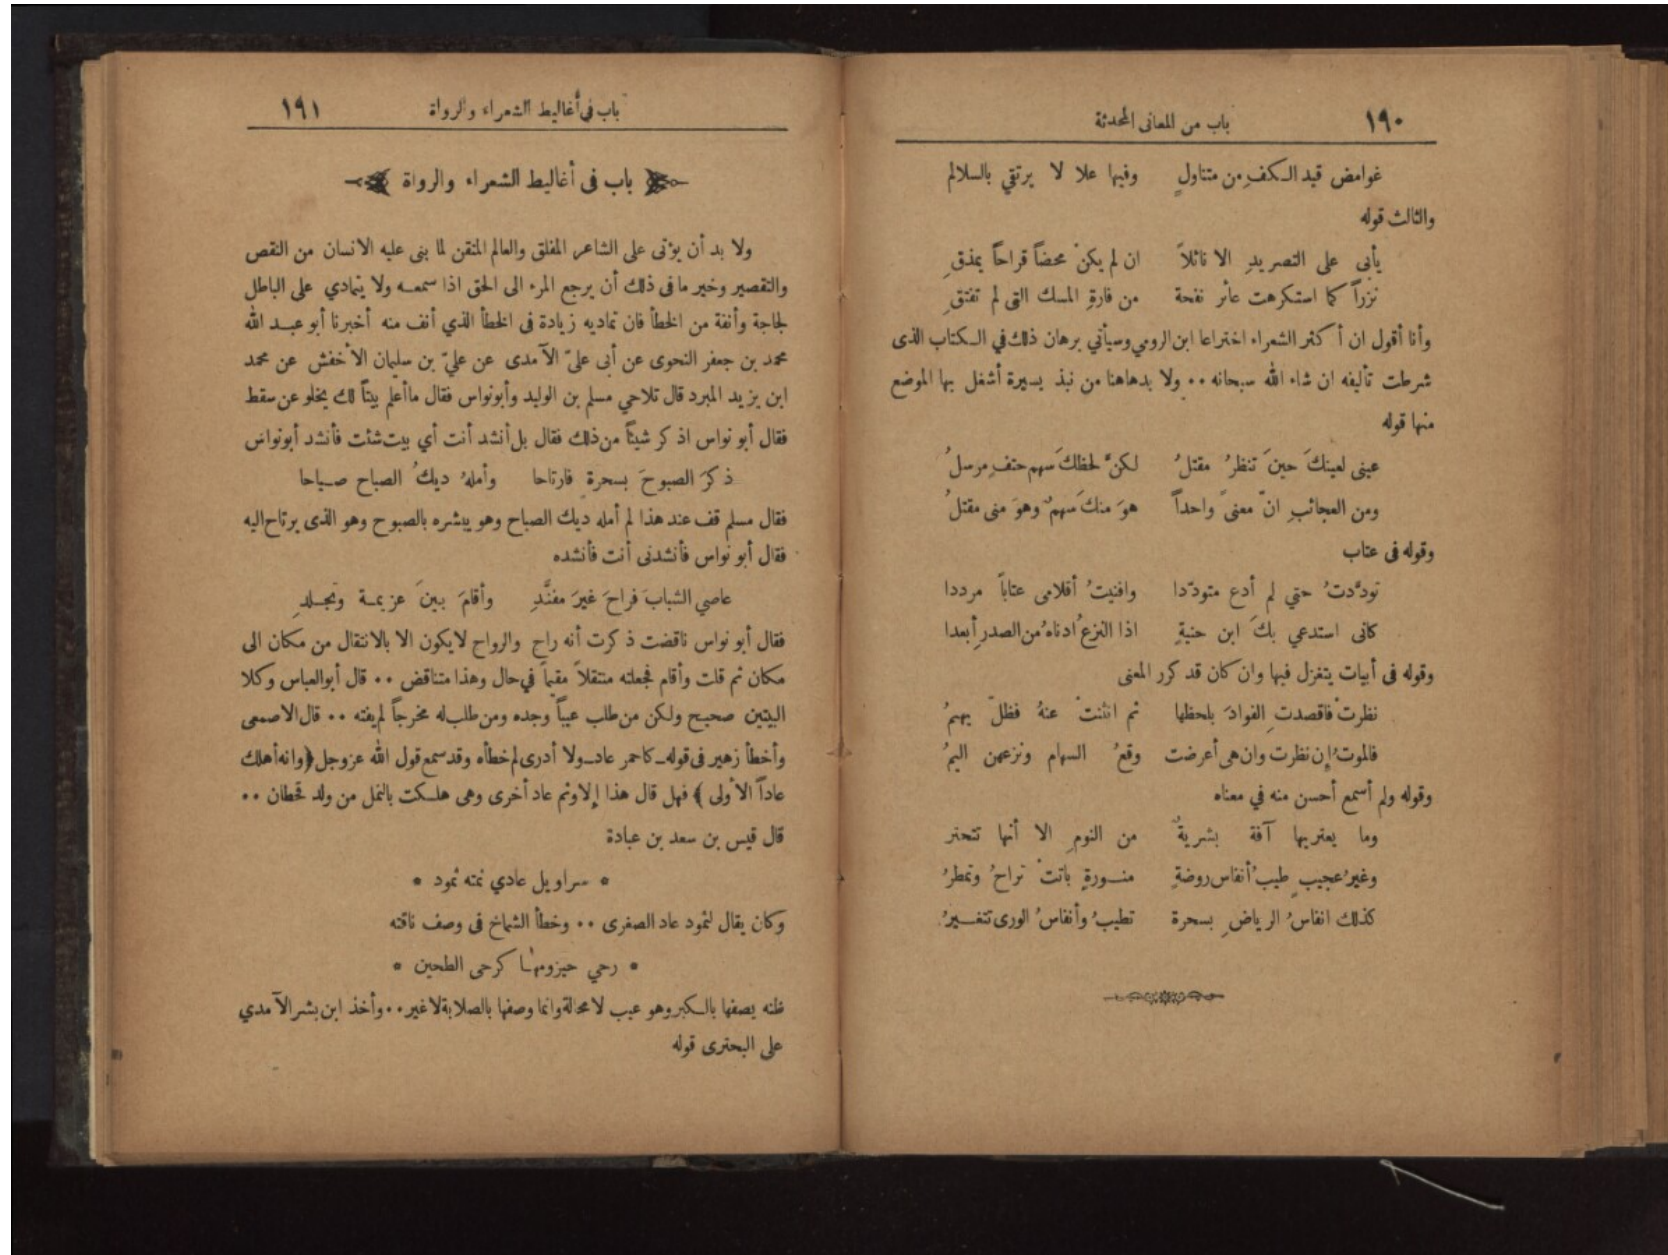 ١٩٠ باب من المعانى المحدثة
غوامض قيد الكفِ من متناولٍ وفيها علا لا يرتقي بالسلالم
والثالث قوله
يأبى على التصريدِ الا نائلاً ان لم يكنْ محضاً قراحاً يمذقِ
نزراً كما استكرهت عائر نفحة من فارةِ المسك التى لم تفتقِ
وأنا أقول ان أكثر الشعراء اختراعا ابن الرومي وسيأتي برهان ذلك في الكتاب الذى
شرطت تأليفه ان شاء الله سبحانه ٠٠ ولا بدهاهنا من نبذ يسيرة أشغل بها الموضع
منها قوله
عينى لعينكَ حينَ تنظرُ مقتلُ لكنَّ لحظكَ سهم حتفٍ مرسلُ
ومن العجائبِ انّ معنىً واحداً هوَ منكَ سهمٌ وهوَ منى مقتلُ
وقوله فى عتاب
تودَّدتُ حتي لم أدع متودّدا وافنيتُ أقلامى عتاباً مرددا
كانى استدعي بكَ ابن حنيةٍ اذا النزعُ ادناهُ من الصدرِ أبعدا
وقوله فى أبيات يتغزل فيها وان كان قد كرر المعنى
نظرتْ فاقصدتِ الفوادَ بلحظها ثم انثنتْ عنهُ فظلّ يهيمُ
فالموتُ إن نظرت وان هى أعرضت وقعُ السهام ونزعهن اليمُ
وقوله ولم أسمع أحسن منه في معناه
وما يعتريها آفة بشريةٌ من النومِ الا أنها تتختر
وغيرُ عجيبٍ طيبُ أنفاس روضةٍ منورةٍ باتتْ تراحُ وتمطرُ
كذلك انفاسُ الرياضِ بسحرة تطيبُ وأنفاسُ الورى تتغيرُ
باب فى أغاليط الشعراء والرواة ١٩١
باب فى أغاليط الشعراء والرواة
ولا بد أن يؤتى على الشاعر المفلق والعالم المتقن لما بنى عليه الانسان من النقص
والتقصير وخير ما فى ذلك أن يرجع المرء الى الحق اذا سمعه ولا يتمادي على الباطل
لجاجة وأنفة من الخطأ فان تماديه زيادة فى الخطأ الذي أنف منه أخبرنا أبو عبد الله
محمد بن جعفر النحوى عن أبى علىّ الآمدى عن علىّ بن سليمان الأخفش عن محمد
ابن يزيد المبرد قال تلاحي مسلم بن الوليد وأبونواس فقال ماأعلم بيتاً لك يخلو عن سقط
فقال أبو نواس اذكر شيئاً من ذلك فقال بل أنشد أنت أي بيت شئت فأنشد أبونواس
ذكرَ الصبوحَ بسحرةٍ فارتاحا وأملهُ ديكُ الصباح صباحا
فقال مسلم قف عند هذا لم أمله ديك الصباح وهو يبشره بالصبوح وهو الذى يرتاح اليه
فقال أبو نواس فأنشدنى أنت فأنشده
عاصي الشبابَ فراحَ غيرَ مفنَّدِ وأقامَ بينَ عزيمة وتجلدِ
فقال أبو نواس ناقضت ذكرت أنه راح والرواح لايكون الا بالانتقال من مكان الى
مكان ثم قلت وأقام فجعلته منتقلاً مقيماً في حال وهذا متناقض ٠٠ قال أبوالعباس وكلا
البيتين صحيح ولكن من طلب عيباً وجده ومن طلب له مخرجاً لم يفته ٠٠ قال الاصمعى
وأخطأ زهير فى قوله ـ كاحمر عاد ـ ولا أدرى لم خطأه وقد سمع قول الله عز وجل ﴿وانه أهلك
عاداً الأولى﴾ فهل قال هذا إلا وثم عاد أخرى وهى هلكت بالنمل من ولد قحطان ٠٠
قال قيس بن سعد بن عبادة
* سراويل عادي نمته ثمود *
وكان يقال لثمود عاد الصغرى ٠٠ وخطأ الشماخ فى وصف ناقته
* رحي حيزومها كرحى الطحين *
ظنه يصفها بالكبر وهو عيب لا محالة وانما وصفها بالصلابة لا غير ٠٠ وأخذ ابن بشر الآمدي
على البحترى قوله